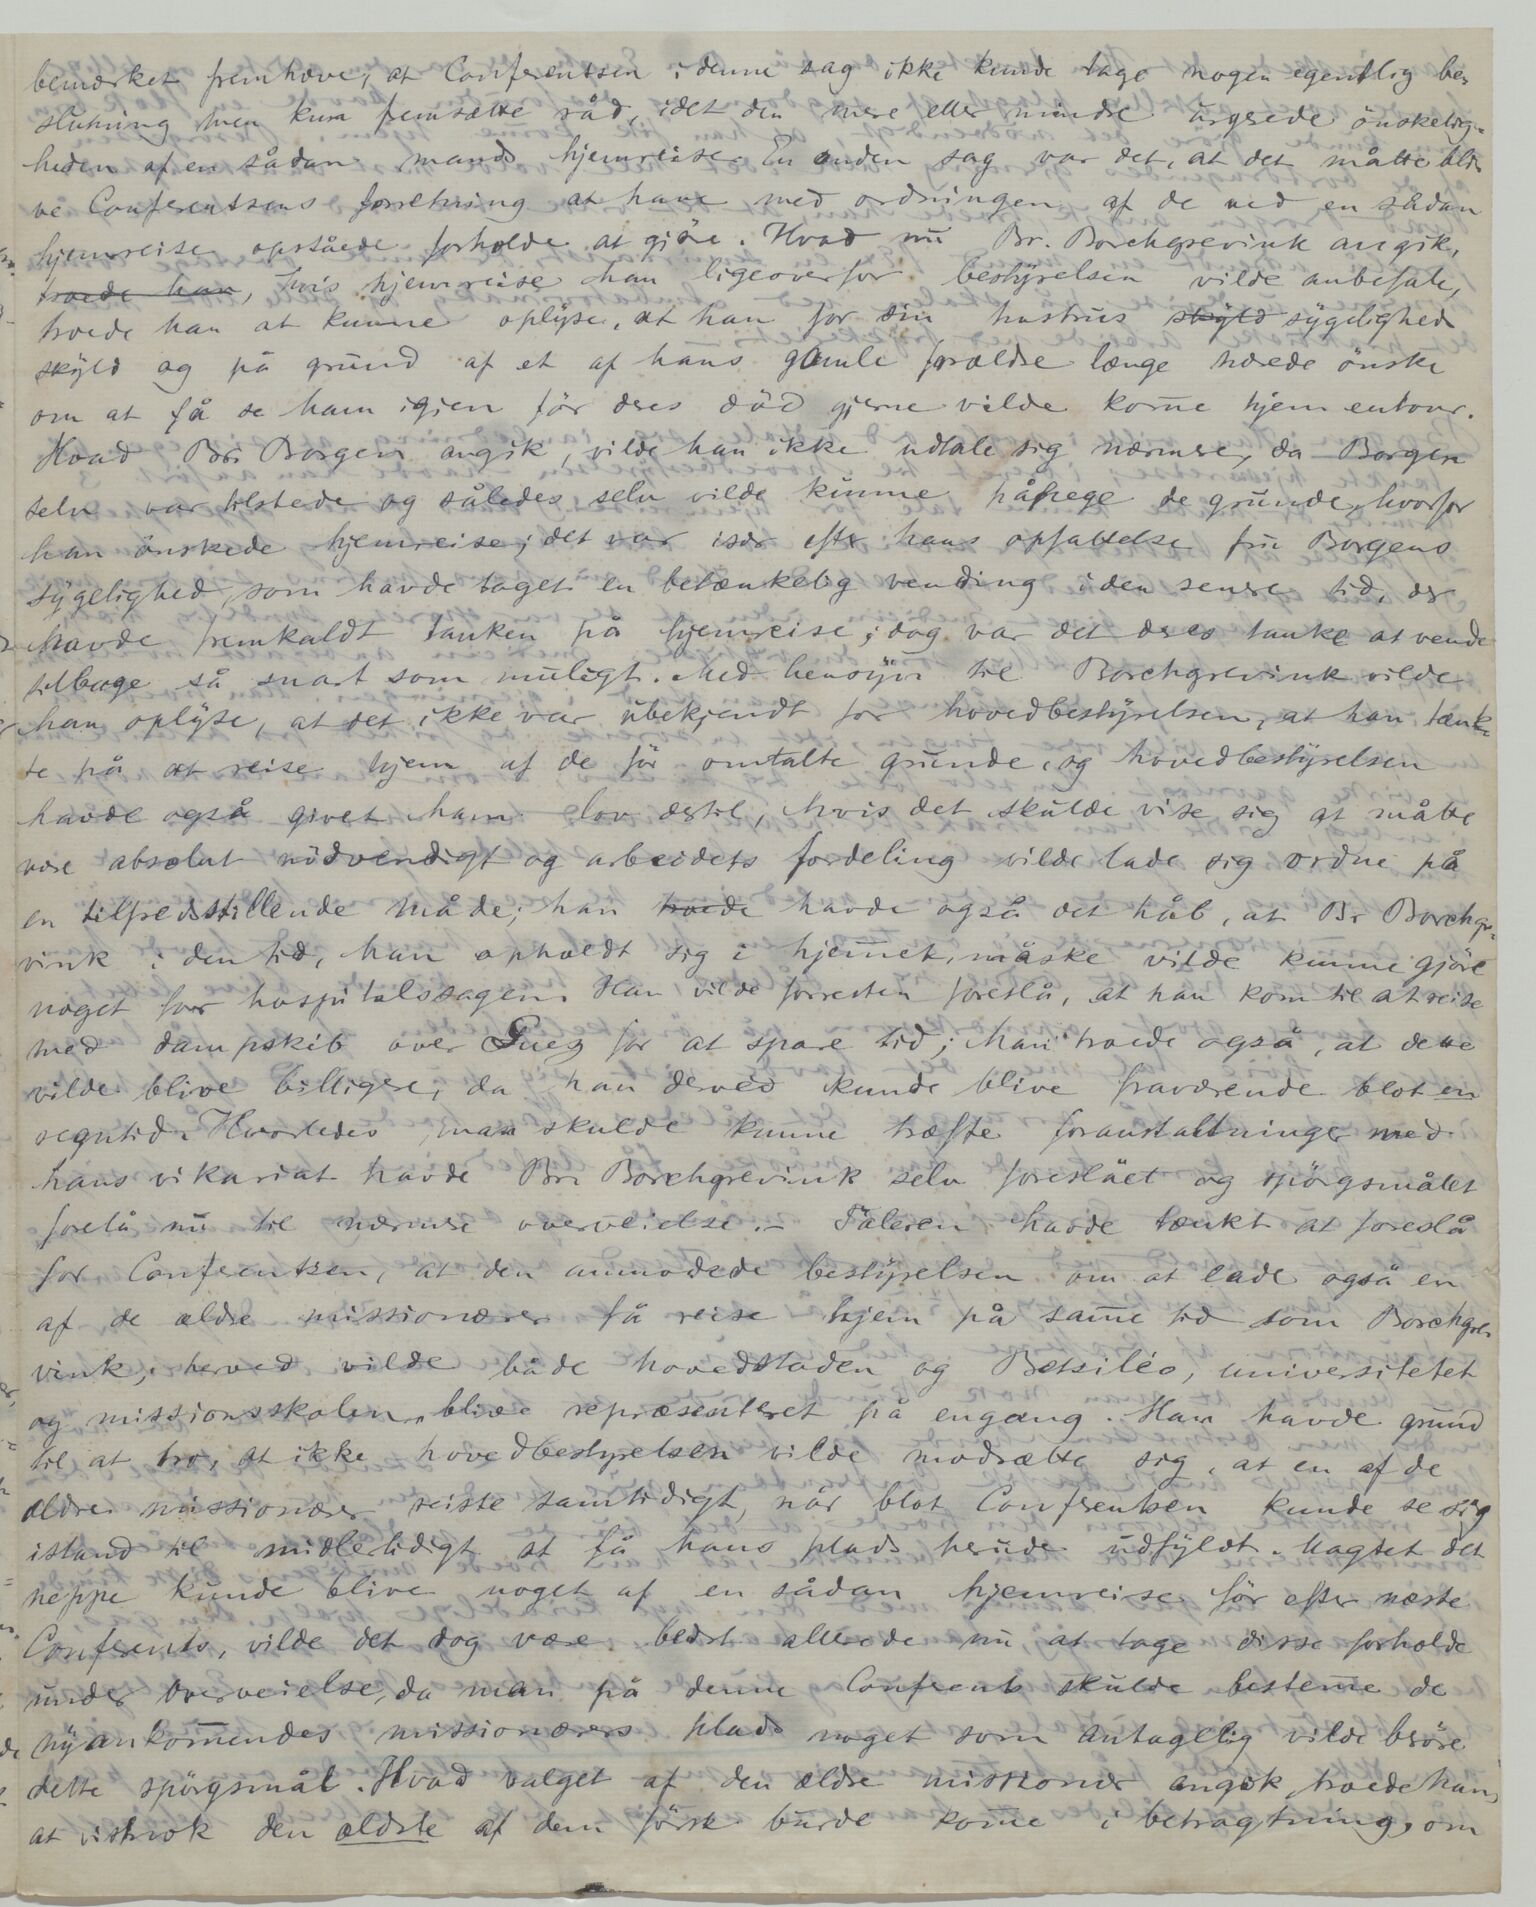 bemærket fremhæve, at Conferentsen i denne sag ikke kunde tage nogen egentlig be-
slutning men kun fremsætte råd, idet den mere eller mindre urgerede ønskelig-
heden af en sådan mands hjemreise. En anden sag var det, at det måtte bli-
ve Conferentsens forretning at have med ordningen af de ved en sådan
hjemreise opståede forholde at gjöre. Hvad nu Br. Borchgrevink angik,
troede han, hvis hjemreise han ligeoverfor bestyrelsen vilde anbefale,
troede han at kunne oplyse, at han for sin hustrus skyld sygelighed
skyld og på grund af et af hans gamle forældre længe nærede önske
om at få se ham igjen för deres död gjerne vilde kom̄e hjem entour.
Hvad Br. Borgen angik, vilde han ikke udtale sig nærmere, da Borgen
selv var tilstede og således selv vilde kunne påpege de grunde, hvorfor
han önskede hjemreise; det var især efter hans opfattelse fru Borgens
sygelighed, som havde taget en betænkelig vending i den senere tid, der
havde fremkaldt tanken på hjemreise; dog var det deres tanke at vende
tilbage så snart som muligt. Med hensyn til Borchgrevink vilde
han oplyse, at det ikke var ubekjendt for hovedbestyrelsen, at han tænk-
te på at reise hjem af de för omtalte grunde, og hovedbestyrelsen
havde også givet ham lov dertil, hvis det skulde vise sig at måtte
være absolut nödvendigt og arbeidets fordeling vilde lade sig ordne på
en tilfredsstillende måde; han troede havde også det håb, at Br Borchgre-
vink i den tid, han opholdt sig i hjem̄et, måske vilde kunne gjöre
noget for hospitalssagen. Han vilde forresten foreslå, at han kom til at reise
med dampskib over Suez for at spare tid; han troede også, at dette
vilde blive billigere, da han derved kunde blive fraværende blot en
regntid. Hvorledes man skulde kunne træffe foranstaltninger med
hans vikariat havde Br. Borchgrevink selv foreslået og spörgsmålet
forelå nu til nærmere overveielse. – Taleren havde tænkt at foreslå
for Conferentsen, at den anmodede bestyrelsen om at lade også en
af de ældre missionærer få reise hjem på sam̄e tid som Borchgre-
vink; herved vilde både hovedstaden og Betsiléo, universitetet
og missionsskolen blive repræsenteret på engang. Han havde grund
til at tro, at ikke hovedbestyrelsen vilde modsætte sig, at en af de
ældre missionærer reiste samtidigt, når blot Conferentsen kunde se sig
istand til midlertidigt at få hans plads herude udfyldt. Uagtet det
neppe kunde blive noget af en sådan hjemreise för efter næste
Conferents, vilde det dog være bedst allerede nu at tage disse forholde
under overveielse, da man på denne Conferents skulde bestem̄e de
nyankom̄endes missionærers plads noget som antagelig vilde beröre
dette spörgsmål. Hvad valget af den ældre missionær angik, troede han,
at vistnok den ældste af dem först burde kom̄e i betragtning, om